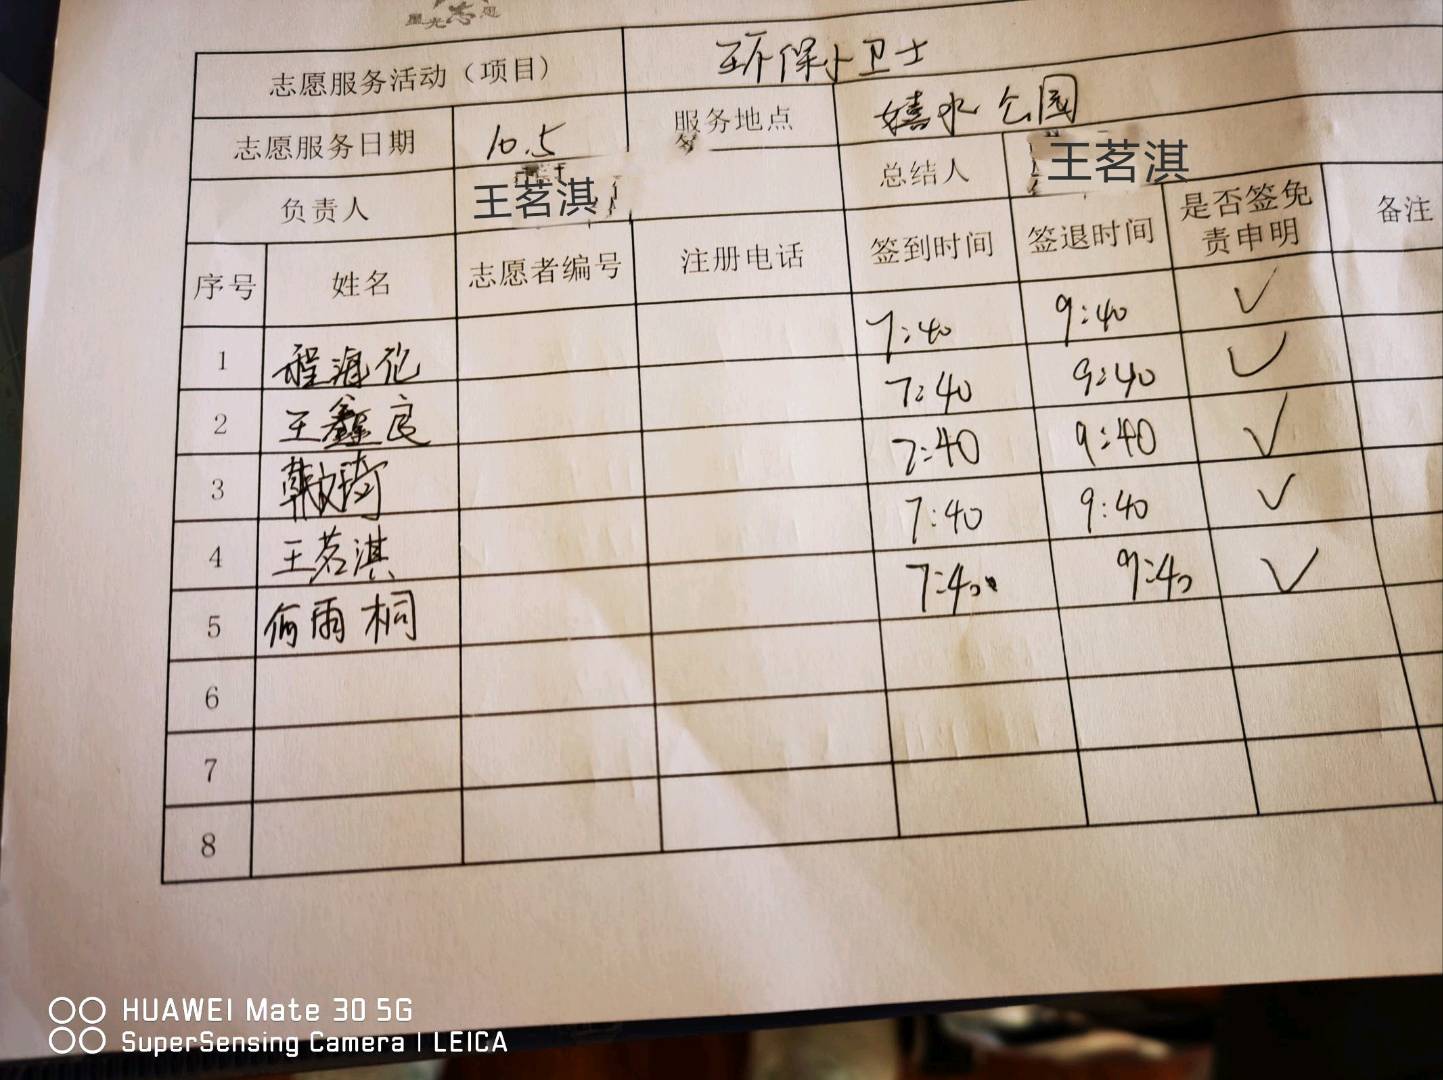 星光志愿
志愿服务活动（项目） 环保小卫士
志愿服务日期 10.5 服务地点 嬉水公园
负责人 王茗淇 总结人 王茗淇
序号 姓名 志愿者编号 注册电话 签到时间 签退时间 是否签免责申明 备注
1 程海伦 7:40 9:40 ✓
2 王鑫良 7:40 9:40 ✓
3 韩文琦 7:40 9:40 ✓
4 王茗淇 7:40 9:40 ✓
5 何雨桐 7:40 9:40 ✓
6
7
8
HUAWEI Mate 30 5G
SuperSensing Camera | LEICA